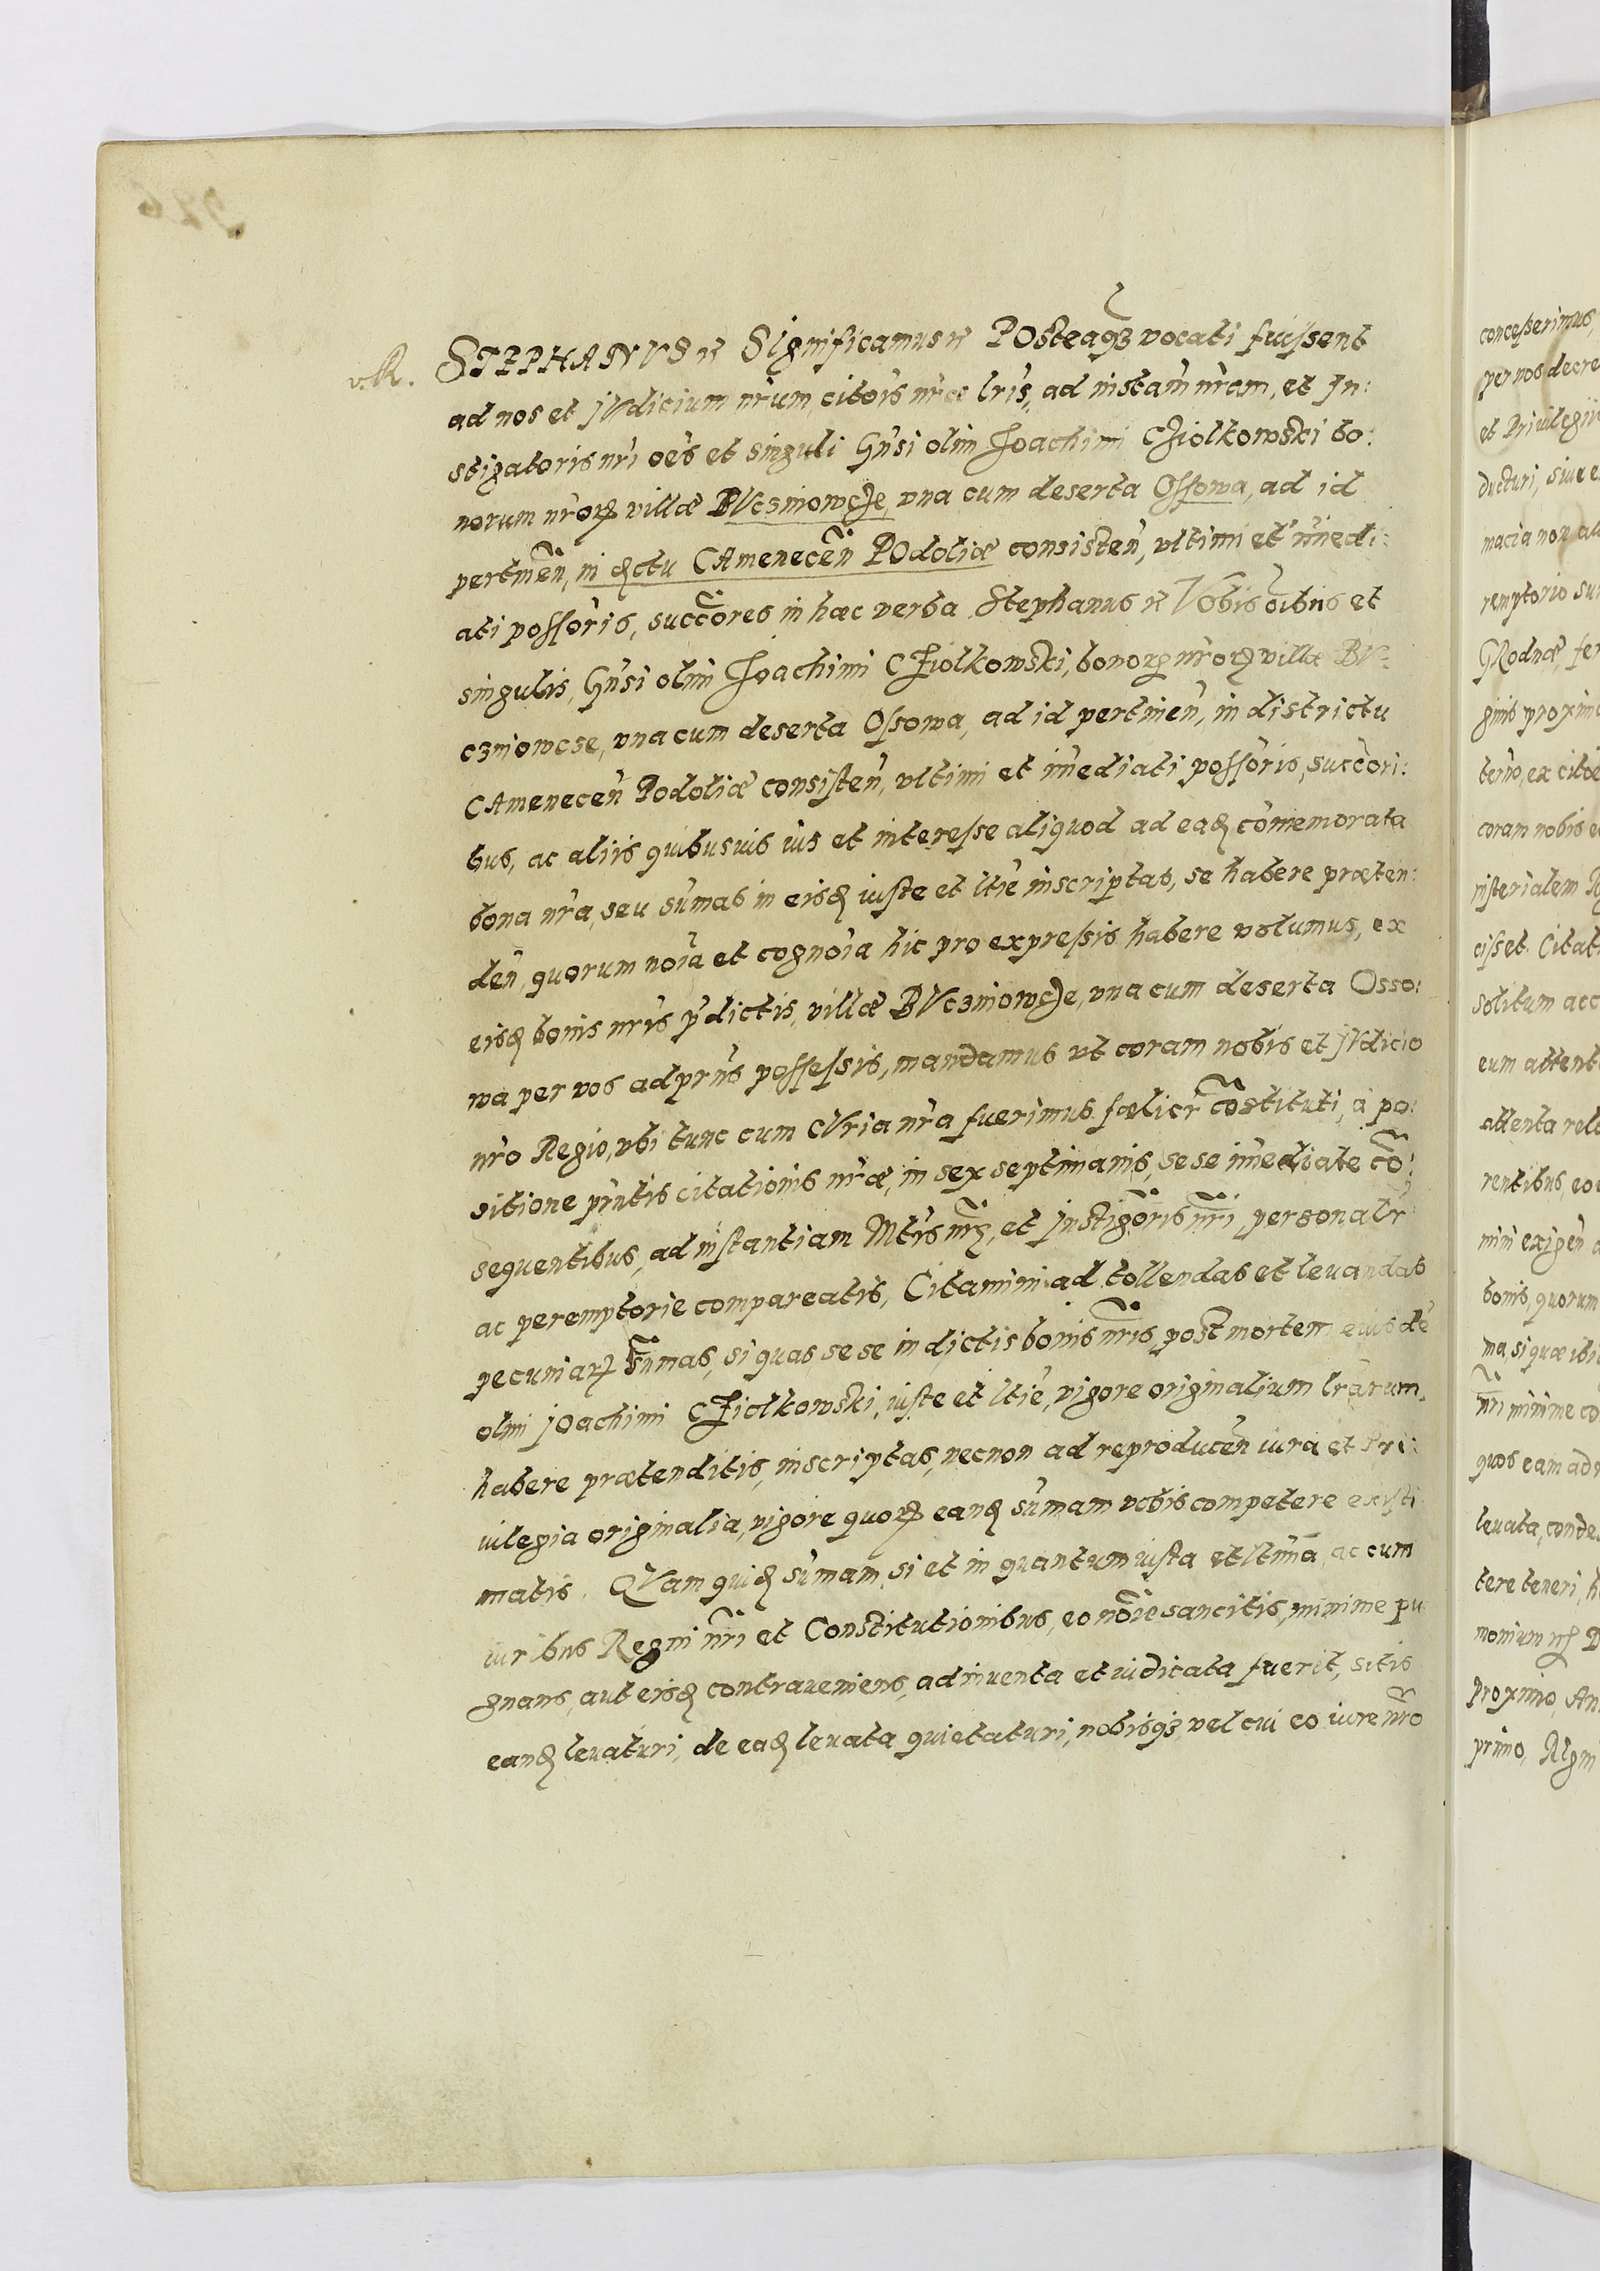 STEPHANVS etc Significamus etc POsteaqꝫ vocati fuissent
ad nos et jVdicium nr̃um, citõis nr̃æ lr̃is, ad instañ nr̃am, et In:
stigatoris nr̃i oẽs et singuli Gñsi olim Joachimi CZiolkowski bo:
norum nr̃oꝝ villæ BVczniowcze, vna cum deserta Ossowa, ad id
pertineñ, in dctu CAmeneceñ POdoliæ consisteñ, vltimi et im̃edi:
ati possõris, succ̃ores in hæc verba Stephanus etc Vobis oĩbus et
singulis, Gñsi olim Joachimi CZiolkowski, bonoꝝ nr̃oꝝ villæ BV:
czniowcze, vna cum deserta Ossowa, ad id pertineñ, in districtu
CAmeneceñ Podoliæ consisteñ, vltimi et im̃ediati possõris, succ̃ori:
bus, ac aliis quibusuis ius et interesse aliquod ad eaꝫ com̃emorata
bona nr̃a, seu sum̃as in eisꝫ iuste et lt̃ie inscriptas, se habere præten:
deñ, quorum nõia et cognõia hic pro expressis habere volumus, ex
eisꝫ bonis nr̃is p̃dictis, villæ BVczniowcze, vna cum deserta Osso:
wa per vos ad prñs possessis, mandamus vt coram nobis et jVdicio
nr̃o Regio, vbi tunc cum CVria nr̃a fuerimus fœlicr̃ cõstituti, à po:
sitione prñtis citationis nr̃æ, in sex septimanis, sese im̃ediate cõ:
sequentibus, ad instantiam Mt̃is nr̃æ, et Instigõris nr̃i, personalr̃
ac peremptorie compareatis, Citamini ad tollendas et leuandas
pecuniaꝝ sum̃as, si quas sese in dictis bonis nr̃is, post mortem eiusdẽ
olim jOachimi CZiolkowski, iuste et lt̃ie, vigore originalium lr̃arum,
habere prætenditis, inscriptas, necnon ad reproduceñ iura et Pri:
uilegia originalia, vigore quoꝝ eanꝫ sum̃am vobis competere existi
matis. QVam quiꝫ sum̃am, si et in quantum iusta et lt̃ima, ac cum
iuribus Regni nr̃i et Constitutionibus, eo nõie sancitis, minime pu
gnans, aut eisꝫ contraueniens, adinuenta et iudicata fuerit, sitis
eanꝫ leuaturi, de eaꝫ leuata quietaturi, nobisqꝫ, vel cui eo iure nr̃o
concesserimus,
per nos decre
et Priuilegii
ducturi, siue e
macia non
remptorio
GRodnæ, fer
ginis proxim
coram nobis
nisterialem
cisset. Citat
solitum acc
eum attent
attenta rel
rentibus, eo
bonis, quorum
ma, si quæ ibi
nr̃i minime co
quos eam ad
leuata, conde
tere teneri,
proximo, An
primo, Regni